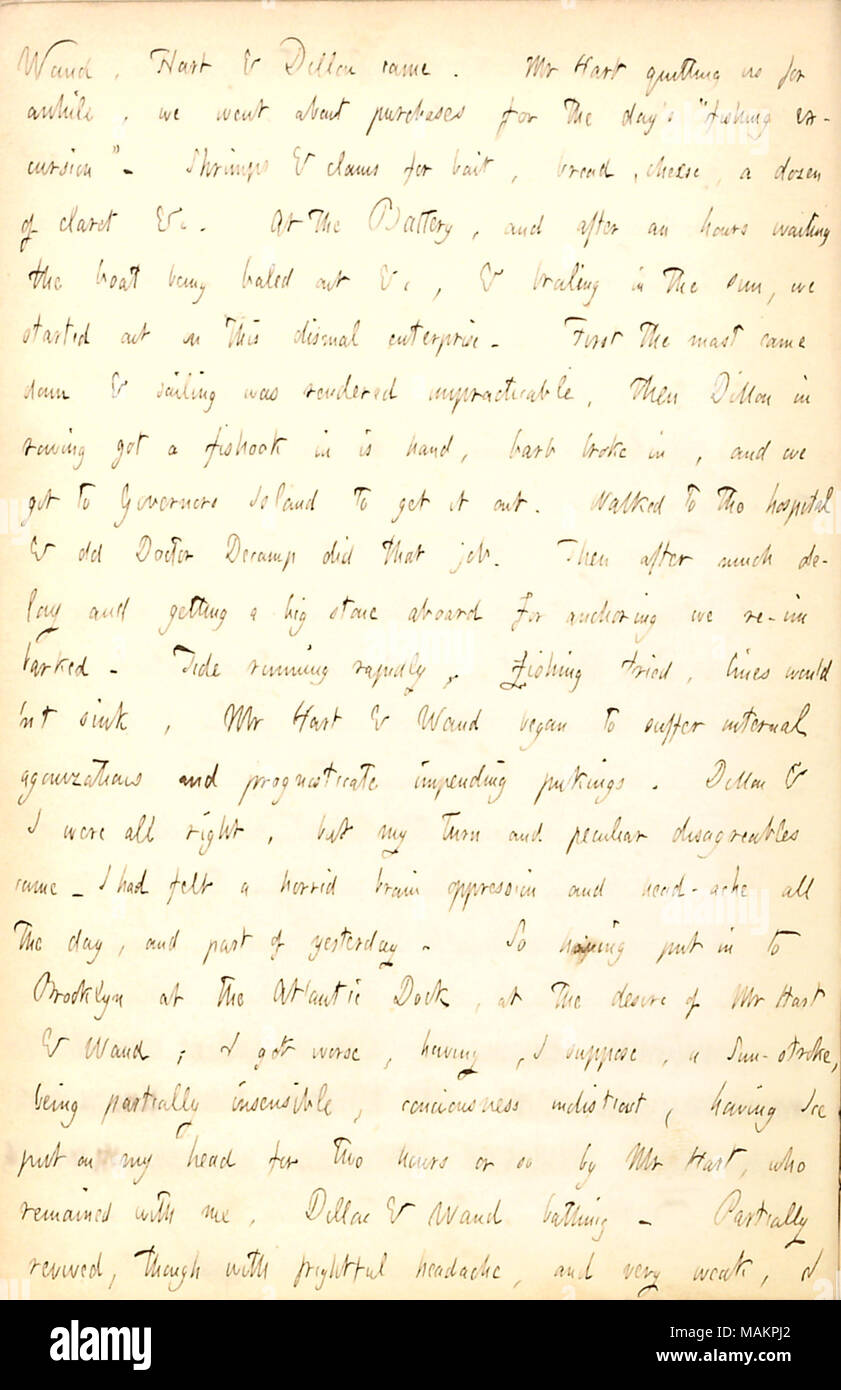 Waud, Hart & Dillon came. Mr Hart quitting us for
awhile, we went about purchases for the day's "fishing ex-
cursion"- Shrimps & clams for bait, bread, cheese, a dozen
of claret &c. At the Battery, and after an hours waiting
the boat being baled out &c, & broiling in the sun, we
started out on this dismal enterprise- First the mast came
down & sailing was rendered impracticable, then Dillon in
rowing got a fishook in is hand, barb broke in, and we
got to Governors Island to get it out. Walked to the hospital
& old Doctor Decamp did that job. Then after much de-
lay and getting a big stone aboard for anchoring we re-im
barked- Tide running rapidly, fishing tried, lines would
'nt sink, Mr Hart & Waud began to suffer internal
agonizations and prognosticate impending pukings. Dillon &
I were all right, but my turn and peculiar disagreables
came- I had felt a horrid brain oppression and head-ache all
the day, and part of yesterday- So having put in to
Brooklyn at the Atlantic Dock, at the desire of Mr Hart
& Waud; I got worse, having, I suppose, a Sun-stroke,
being partially insensible, conciousness indistinct, having Ice
put on my head for two hours or so by Mr Hart, who
remained with me, Dillon & Waud bathing- Partially
revived, though with frightful headache, and very weak, I
alamy
Image ID: MAKPJ2
www.alamy.com